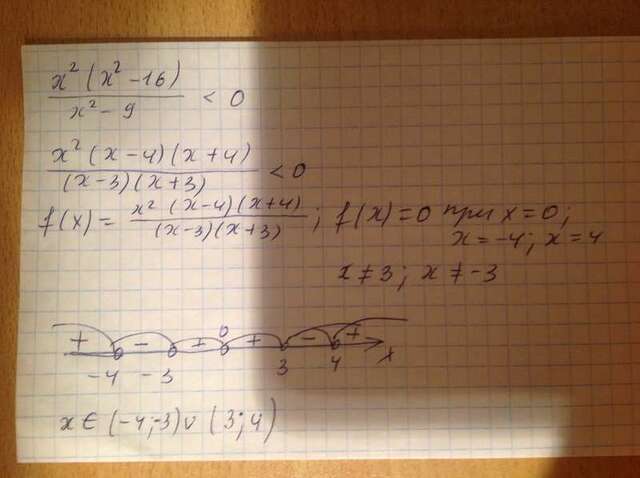 x² (x² - 16) / x² - 9 < 0
x² (x - 4) (x + 4) / (x - 3) (x + 3) < 0
f(x) = x² (x - 4) (x + 4) / (x - 3) (x + 3) ; f(x) = 0 при x = 0 ;
x = -4 ; x = 4
x ≠ 3 ; x ≠ -3
0
+ - + + - +
-4 -3 3 4 x
x ∈ (-4 ; -3) ∪ (3 ; 4)